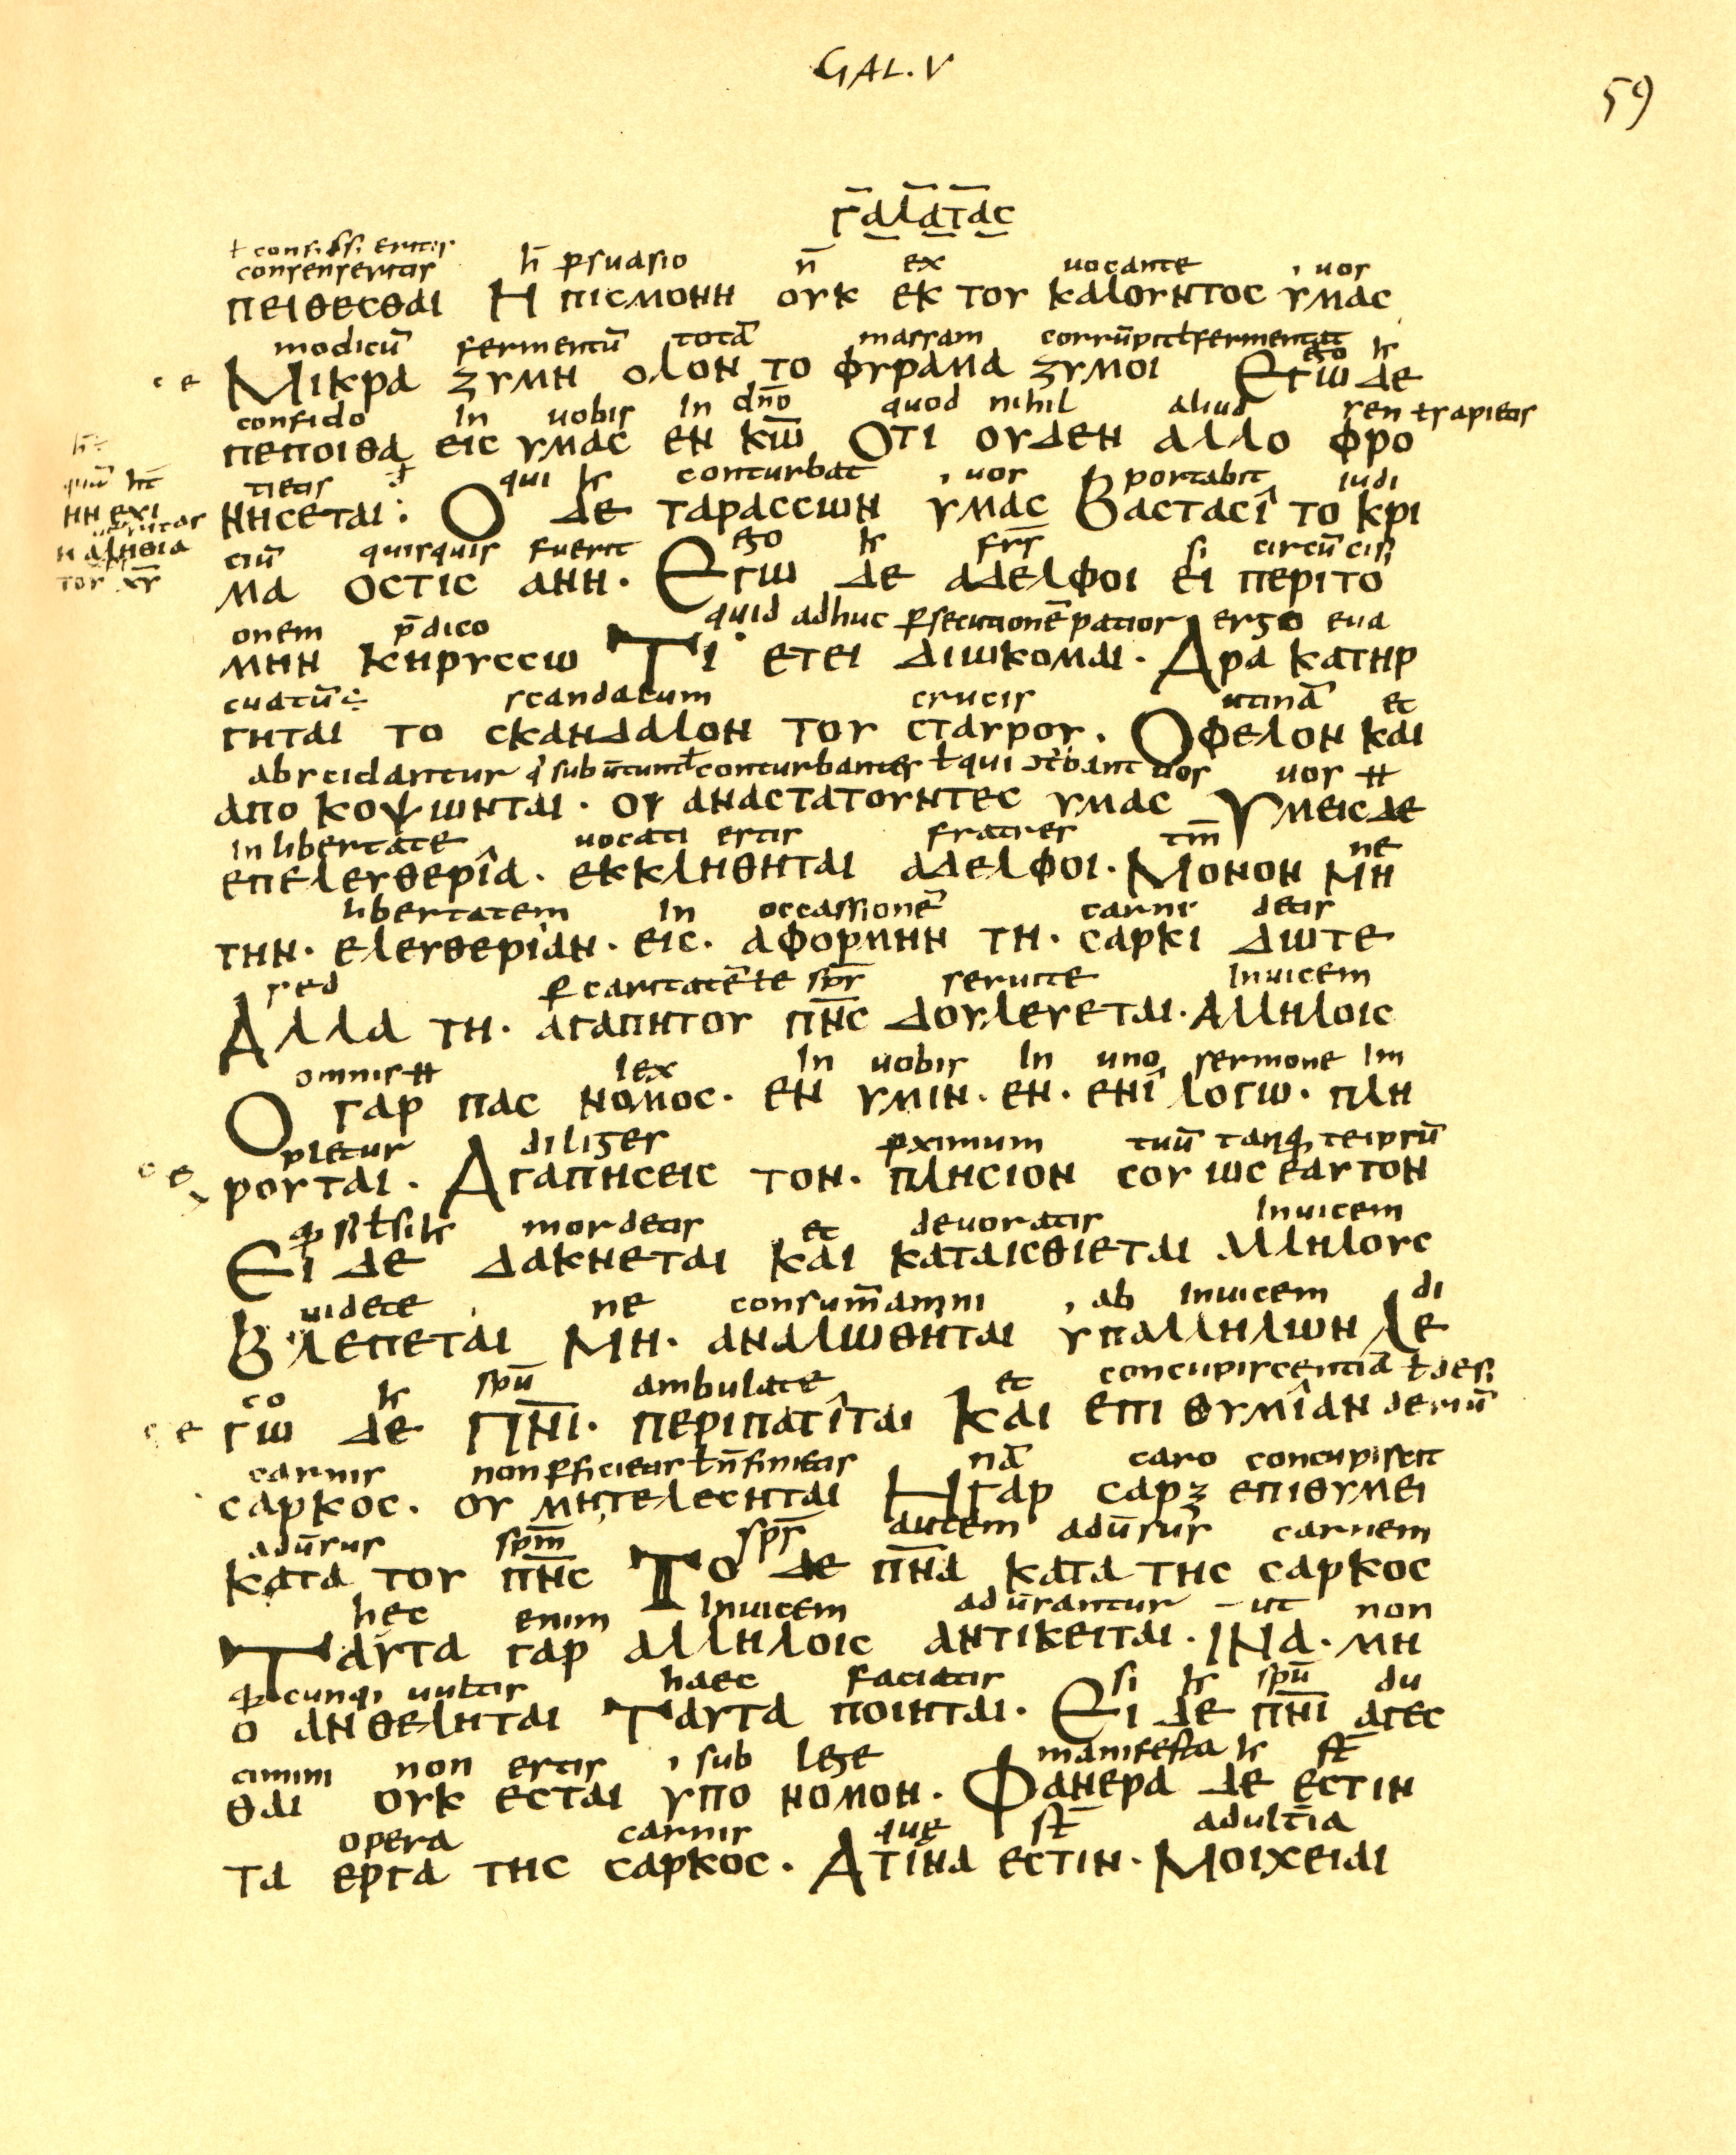 GAL. V
59
γαλατας
ł consi
consensertis h̄ ꝑsuasio n̄ ex uocante uos
πειθεσθαι Η πισμονη ουκ εκ του καλουντος υμας
modicū fermentū totā massam
Μικρα ζυμη ολον το φυραμα ζυμοι Εγω δε
confido In uobis In dn̄o quod nihil aliud
πεποιθα εις υμας εν κω̄ Οτι ουδεν αλλο φρο
tietis qui conturbat uos portabit iudi
νησεται: Ο δε ταρασσων υμας Βαστασι το κρι
ciū quisquis fuerit ego fr̄s si circūcisi
μα οστις ανη. Εγω δε αδελφοι ει περιτο
onem p̄dico quid adhuc ꝑsecutionē patior ergo eua
μην κηρυσσω Τι ετει διωκομαι. Αρα κατηρ
cuatū scandalum crucis utinā et
γηται το σκανδαλον του σταυρου. Οφελον και
abscidantur uos
απο κοψωνται. ου αναστατουντες υμας Υμεις δε
In libertate uocati estis fratres tm̄ ne
επελευθερια. εκκληθηται αδελφοι. Μονον μη
libertatem In occassionē carnis detis
την. ελευθεριαν. εις. αφορμην τη. σαρκι δωτε
sed ꝑ caritatē sp̄s seruite Inuicem
Αλλα τη. αγαπητου πν̄ς δουλευεται. Αλληλοις
omnis lex In uobis In uno sermone Im
Ο γαρ πας νομος. εν υμιν. εν. ενι λογω. πλη
pletur diliges ꝓximum tuū teipsū
ρουται. Αγαπησεις τον. πλησιον σου ως εαυτον
mordetis et deuoratis Inuicem
Ει δε δακνεται και καταισθιεται Αλληλους
uidete ne consum̄amini ab Inuicem di
Βλεπεται Μη. αναλωθηται υπαλληλων Λε
co sp̄u ambulate et concupiscentiā
γω δε πν̄ι. περιπατιται και επι θυμιαν
carnis non ꝑficietis nā caro concupiscit
σαρκος. ου μητελεσηται Η γαρ σαρζ επιθυμει
adūsus sp̄m sp̄s autem adūsus carnem
κατα του πν̄ς Το δε πν̄α κατα της σαρκος
hec enim Inuicem adūsantur ut non
Ταυτα γαρ αλληλοις αντικειται. ΙΝα. μη
uultis haec faciatis si sp̄u du
ο ανθεληται Ταυτα ποιηται. Ει δε πν̄ι αγες
cimini non estis sub lege manifesta st̄
θαι ουκ εσται υπο νομον. Φανερα δε εστιν
opera carnis que st̄ adult̄ia
τα εργα της σαρκος. Ατινα εστιν. Μοιχειαι